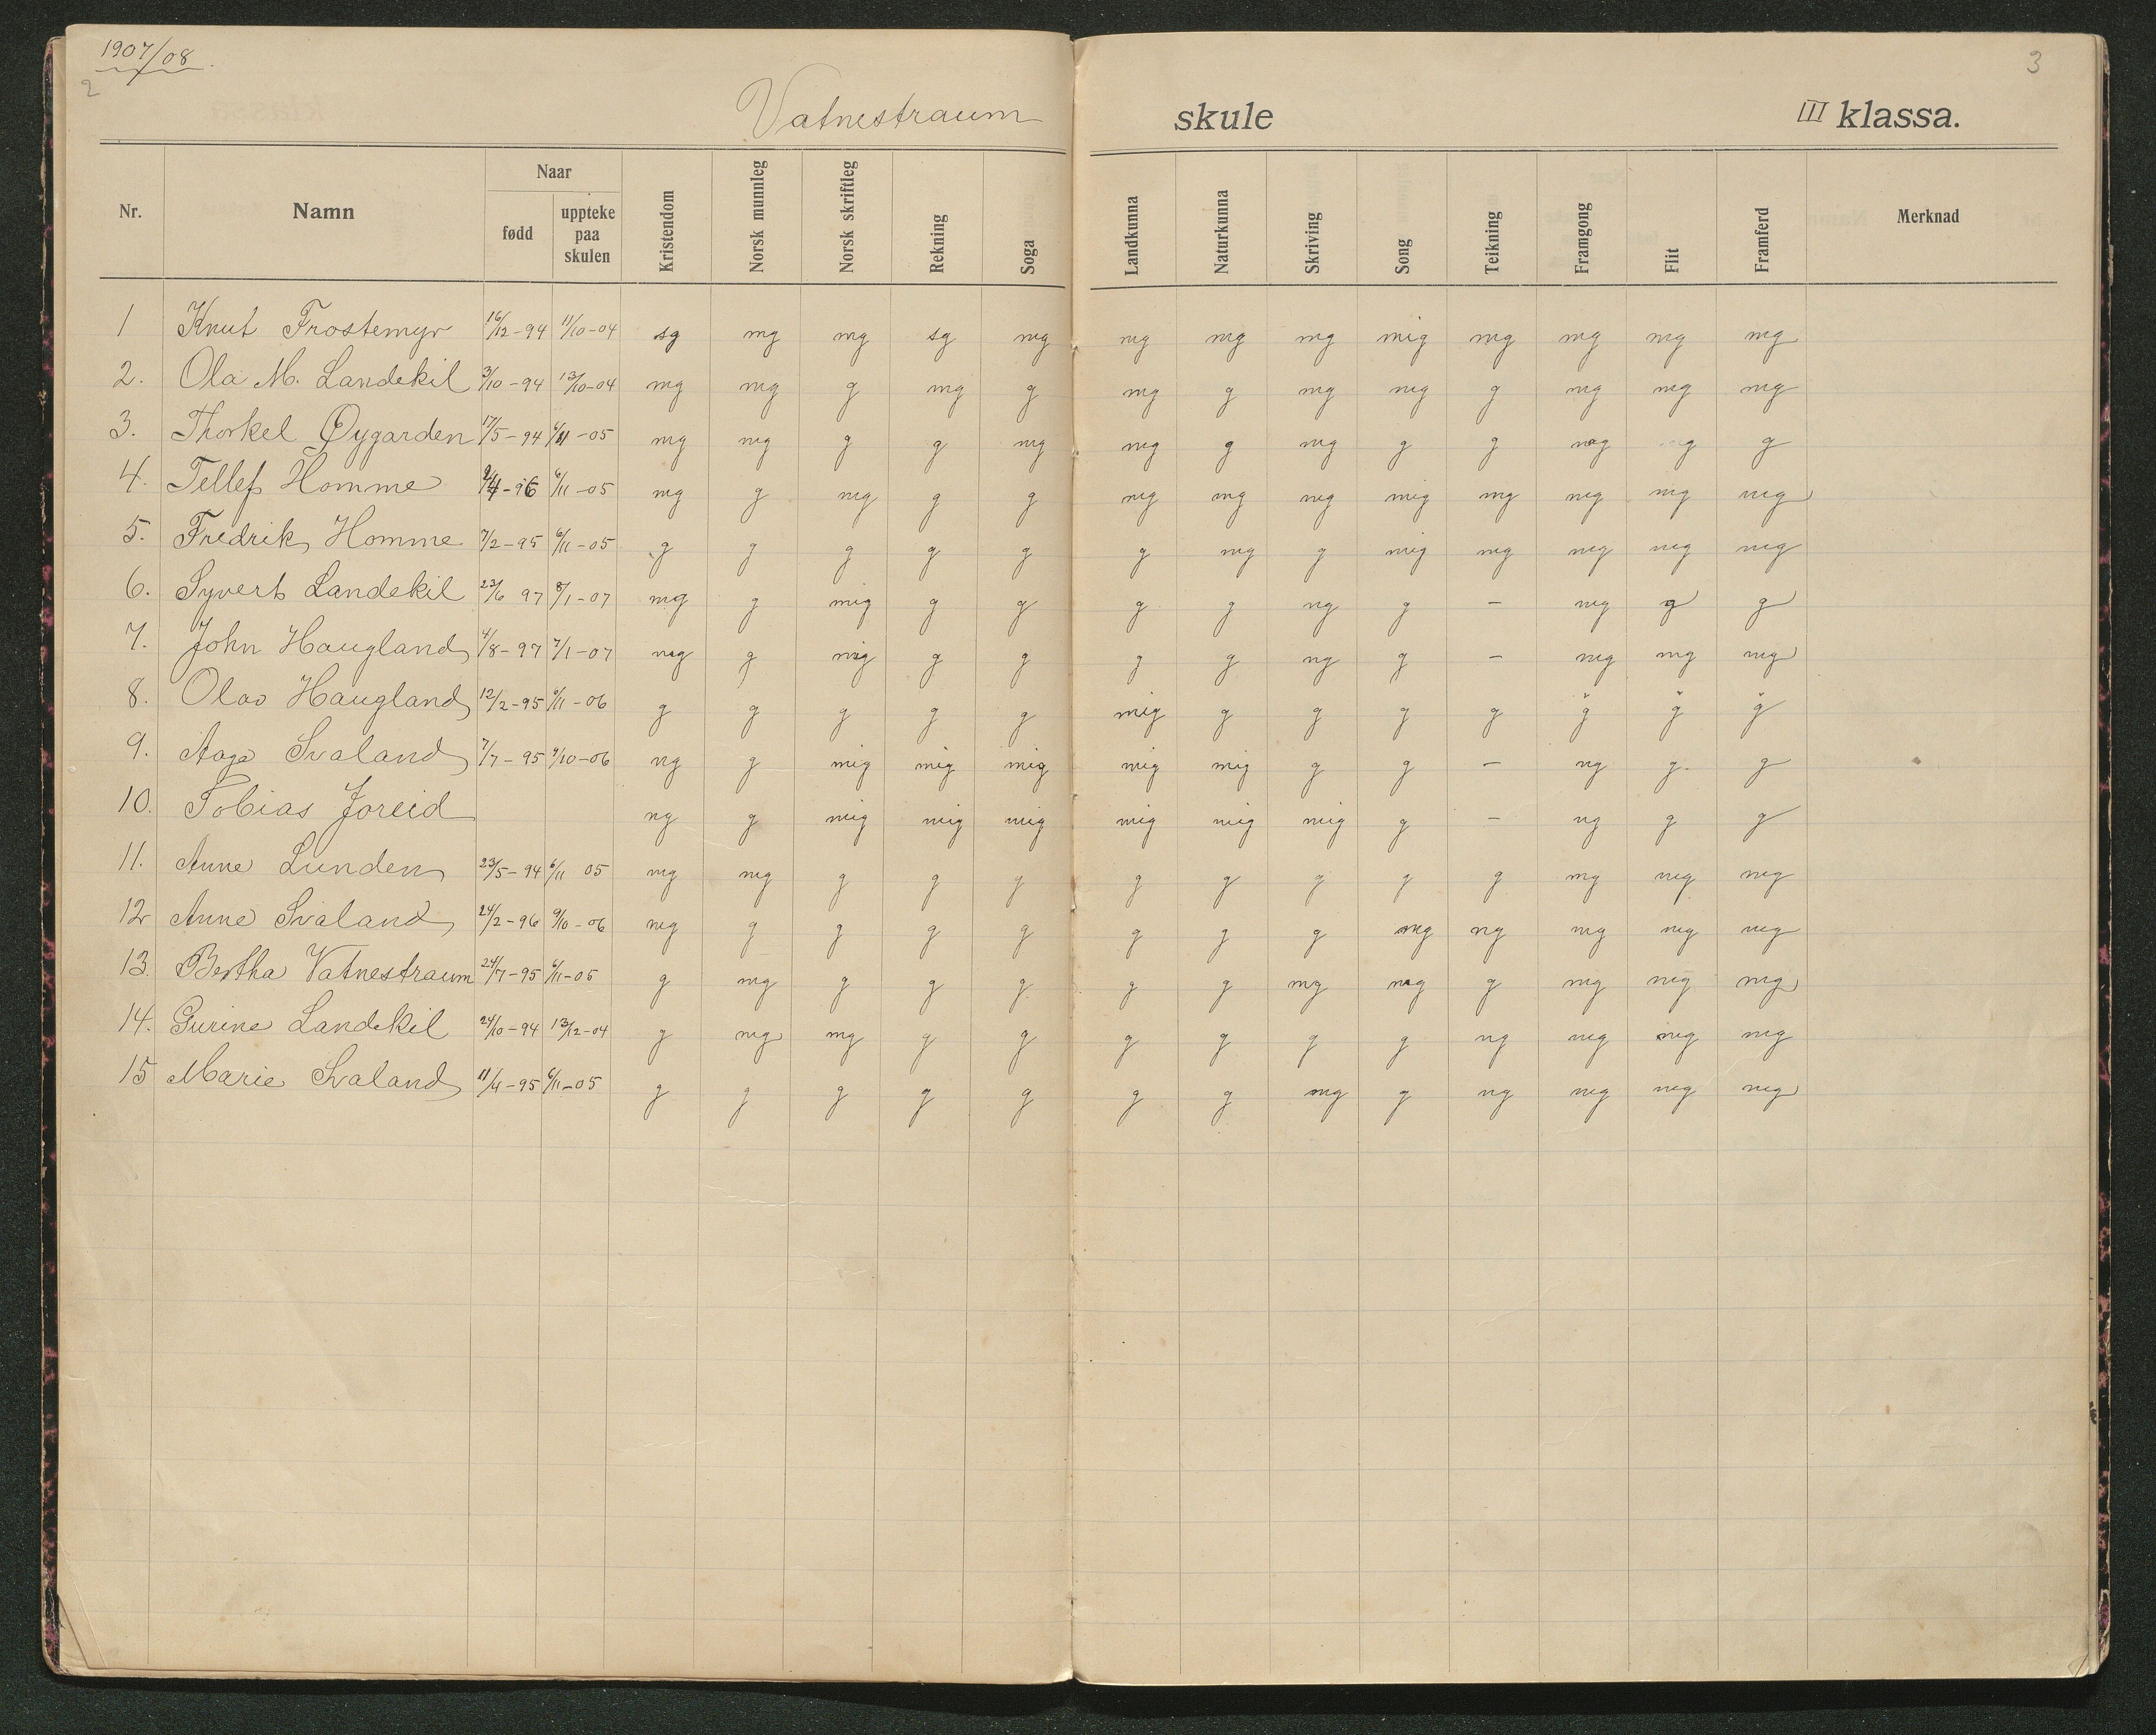 1907/08.
2
3
Vatnestraum skule III klassa.
Nr. Namn Naar fødd uppteke paa skulen Kristendom Norsk munnleg Norsk skriftleg Rekning Soga Landkunna Naturkunna Skriving Song Teikning Framgong Flit Framferd Merknad
1 Knut Frostemyr 16/12-94 11/10-04 sg mg mg sg mg mg mg mg mig mg mg mg mg
2. Ola M. Landekil 3/10-94 13/10-04 mg mg g mg g mg g mg mg g mg mg mg
3. Thorkel Øygarden 17/5-94 6/11-05 mg mg g g mg mg g mg g g mg g
4. Tellef Homme /4-96 6/11-05 mg g mg g g mg mg mg mig mg mg mg mg
5. Fredrik Homme 7/2-95 6/11-05 g g g g g g mg g mig mg mg mg mg
6. Syvert Landekil 23/6 97 8/1-07 mg g mig g g g g ng g - mg g g
7. John Haugland 4/8-97 7/1-07 mg g mig g g g g ng g - mg mg mg
8. Olav Haugland 12/2-95 6/11-06 g g g g g mig g g g g g g g
9. Aage Svaland 7/7-95 9/10-06 ng g mig mig mig mig mig g g - ng g g
10. Tobias Joreid ng g mig mig mig mig mig mig g - ng g g
11. Anne Lunden 23/5-94 6/11 05 mg mg g g g g g g g g mg mg mg
12 Anne Svaland 24/2-96 9/10-06 mg g g g g g g g mg ng mg mg mg
13. Bertha Vatnestraum 24/7-95 6/11-05 g mg g g g g g mg mg g mg mg mg
14. Gurine Landekil 24/10-94 13/12-04 g mg mg g g g g g g ng mg mg mg
15 Marie Svaland 11/4-95 6/11-05 g g g g g g g mg g ng mg mg mg